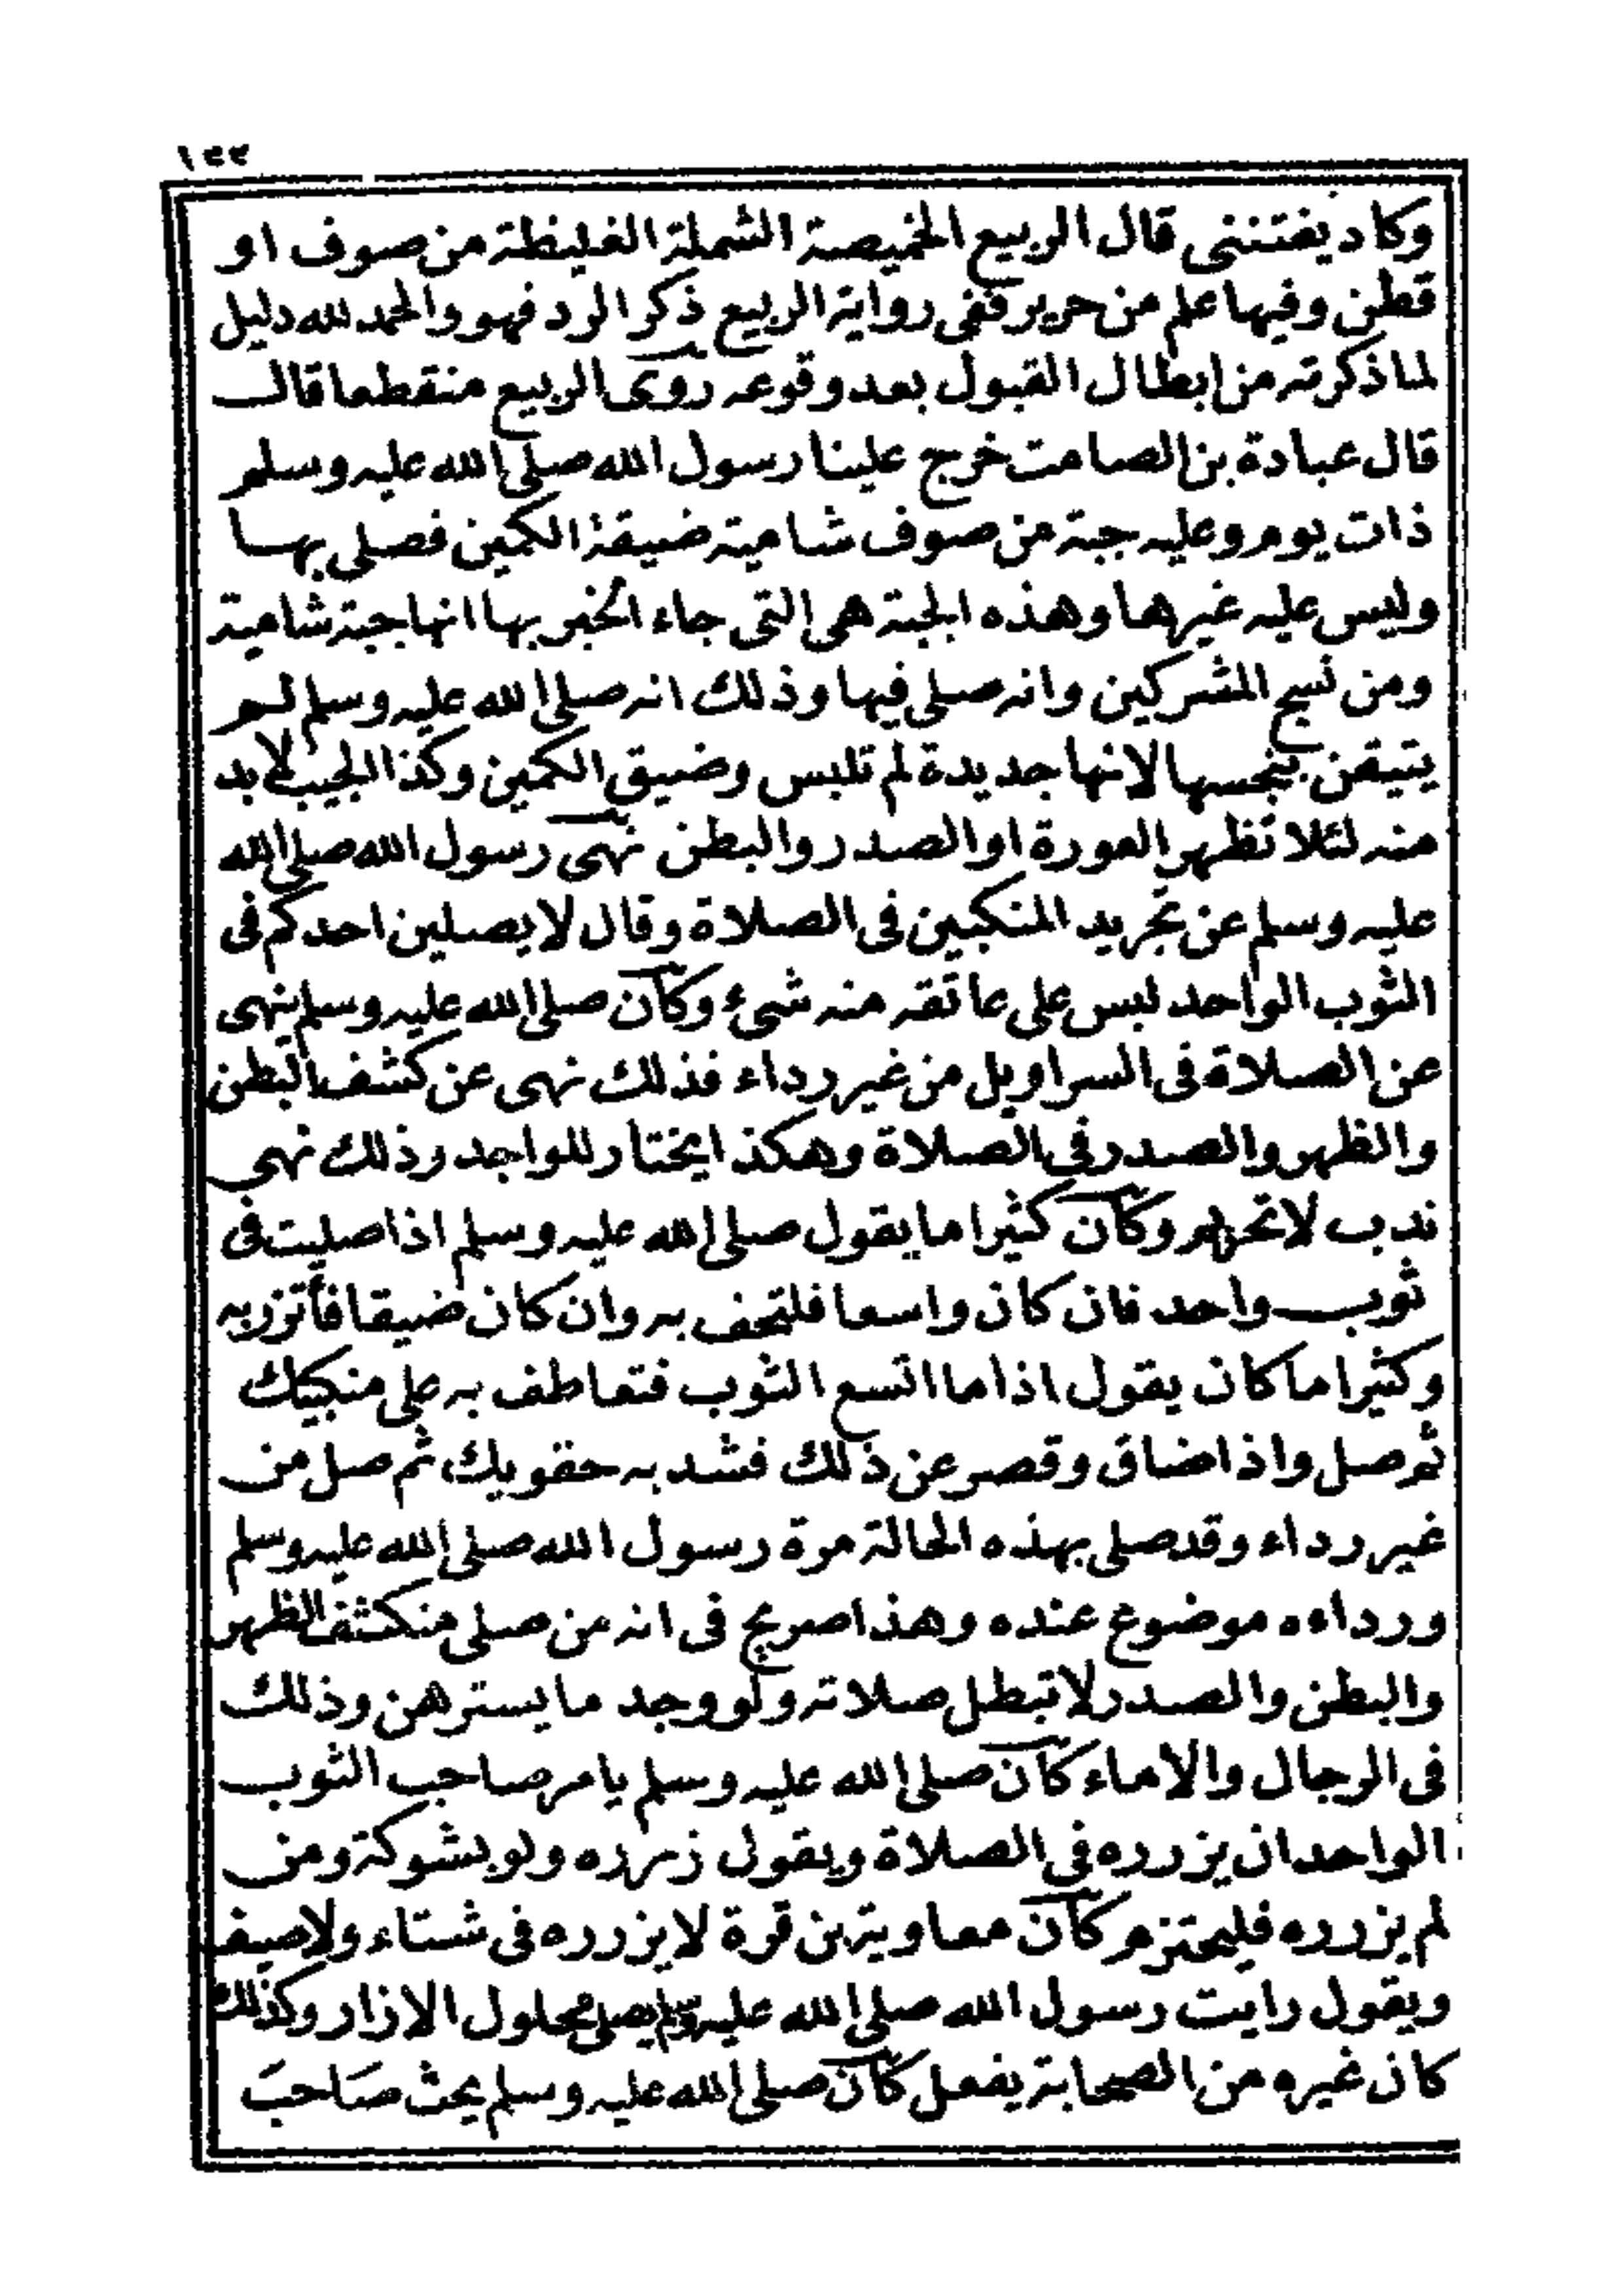 ١٣٣
وكاد يفتننى قال الربيع الخميصة الشملة الغليظة من صوف او
قطن وفيها علم من حرير ففى رواية الربيع ذكر الرد فهو والحمد لله دليل
لما ذكرته من ابطال القبول بعد وقوعه روى الربيع منقطعا قال
قال عبادة بن الصامت خرج علينا رسول الله صلى الله عليه وسلم
ذات يوم وعليه جبة من صوف شامية ضيقة الكمين فصلى بها
وليس عليه غيرها وهذه الجبة هى التى جاء الخبر بها انها جبة شامية
ومن نسج المشركين وانه صلى فيها وذلك انه صلى الله عليه وسلم لم
يتيقن بنجسها لانها جديدة لم تلبس وضيق الكمين وكذا الجيب لا بد
منه لئلا تظهر العورة او الصدر والبطن نهى رسول الله صلى الله
عليه وسلم عن تجريد المنكبين فى الصلاة وقال لا يصلين احدكم فى
الثوب الواحد ليس على عاتقه منه شىء وكان صلى الله عليه وسلم ينهى
عن الصلاة فى السراويل من غير رداء فذلك نهى عن كشف البطن
والظهر والصدر فى الصلاة وهكذا يختار للواجد وذلك نهى
ندب لا تحريم وكان كثيرا ما يقول صلى الله عليه وسلم اذا صليت فى
ثوب واحد فان كان واسعا فلتحف به وان كان ضيقا فأتزر به
وكثيرا ما كان يقول اذا ما اتسع الثوب فتعاطف به على منكبيك
ثم صل واذا ضاق وقصر عن ذلك فشد به حقويك ثم صل من
غير رداء وقد صلى بهذه الحالة مرة رسول الله صلى الله عليه وسلم
ورداءه موضوع عنده وهذا صريح فى انه من صلى منكشف الظهر
والبطن والصدر لا تبطل صلاته ولو وجد ما يسترهن وذلك
فى الرجال والاماء كان صلى الله عليه وسلم يامر صاحب الثوب
الواحد ان يزرره فى الصلاة ويقول زرره ولو بشوكة ومن
لم يزرره فليحتزم كان معاوية بن قرة لا يزرره فى شتاء ولا صيف
ويقول رايت رسول الله صلى الله عليه وسلم يصلى محلول الازار وكذلك
كان غيره من الصحابة يفعل كان صلى الله عليه وسلم يحث صاحب